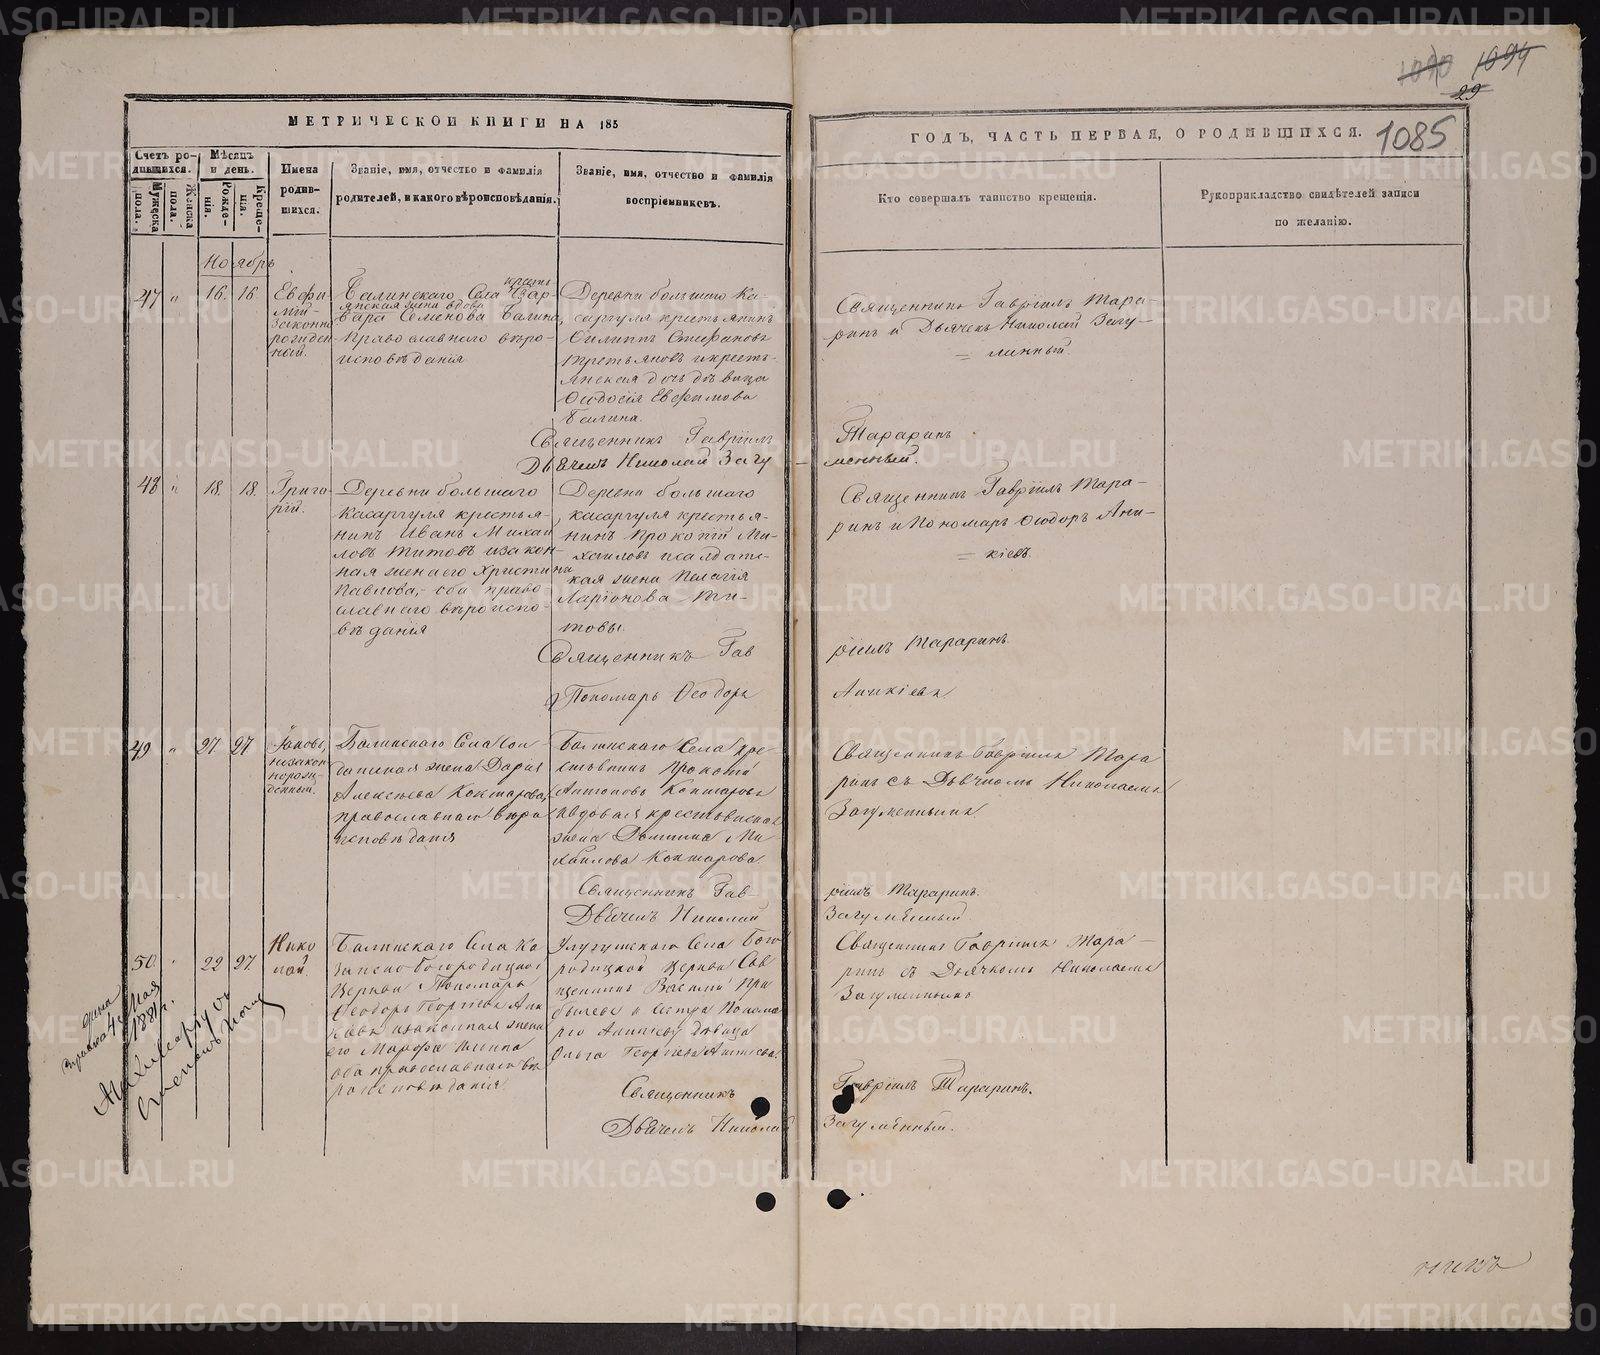 1090 1094
29
МЕТРИЧЕСКОЙ КНИГИ НА 185
ГОДЪ, ЧАСТЬ ПЕРВАЯ, О РОДИВШИХСЯ.
1085
Счетъ ро-
дившихся.
Мужеска
пола.
Женска
пола.
Мѣсяцъ
и день.
Рожде-
нія.
Креще-
нія.
Имена
родив-
шихся.
Званіе, имя, отчество и фамилія
родителей, и какого вѣроисповѣданія.
Званіе, имя, отчество и фамилія
воспріемниковъ.
Кто совершалъ таинство крещенія.
Рукоприкладство свидѣтелей записи
по желанію.
Ноябрь
47 " 16. 16
Евфи-
мій
рожден
ный.
Балинскаго Села Вар-
вара Семенова Балина,
православнаго вѣро-
исповѣданія
Деревни большаго Ка-
саргуля крестьянинъ
Филиппъ Стефановъ
Третьяковъ и крест-
янская дочь дѣвица
Феодосія Евфимова
Балина.
Священникъ Гавріилъ Тара-
ринъ и Дьячекъ Николай Загу-
= менный.
Священникъ Гавріилъ
Тараринъ
Дьячекъ Николай Загу-
менный.
48 " 18. 18.
Григо-
рій.
Деревни большаго
Касаргуля крестья-
нинъ Иванъ Михаи
ловъ Титовъ и закон-
ная жена его Христина
Павлова, оба право
славнаго вѣроиспо-
вѣданія
Деревни большаго
касаргуля крестья-
нинъ Прокопій Ми-
хаиловъ и салдатс-
кая жена Пелагія
Ларіонова Ти-
товы.
Священникъ Гавріилъ Тара-
ринъ и Пономарь Феодоръ Ани-
= кіевъ.
Священникъ Гав
ріилъ Тараринъ
Пономарь Феодоръ
Аникіевъ
49 " 27 27
Іаковъ,
незакон
норож-
денный.
Балинскаго Села Сол
датская жена Дарья
Алексѣева Кокшарова,
православнаго вѣро
исповѣданія
Балинскаго Села кре
стьянинъ Прокопій
Антоновъ Кокшаровъ
и вдовая крестьянская
жена Домнина Ми
хаилова Кокшарова
Священникъ Гавріилъ Тара
ринъ съ Дьячкомъ Николаемъ
Загуменнымъ
Священникъ Гав-
ріилъ Тараринъ.
Дьячекъ Николай
Загуменный
50. " 22 27.
Нико
лай.
Балинскаго Села Ка
занско-богородицкой
Церкви Пономарь
Феодоръ Георгіевъ Ани
кіевъ и законная жена
его Марфа
оба православнаго вѣ
роисповѣданія
Села Бого
родицкой Церкви Свя
щенникъ Василій При
былевъ и Сестра Понома
ря Аникіева дѣвица
Ольга Георгіева Аникіева.
Священникъ Гавріилъ Тара-
ринъ съ Дьячкомъ Николаемъ
Загуменнымъ
Священникъ
Гавріилъ Тараринъ.
Дьячекъ Николай
Загуменный.
4 Мая
1881 г.